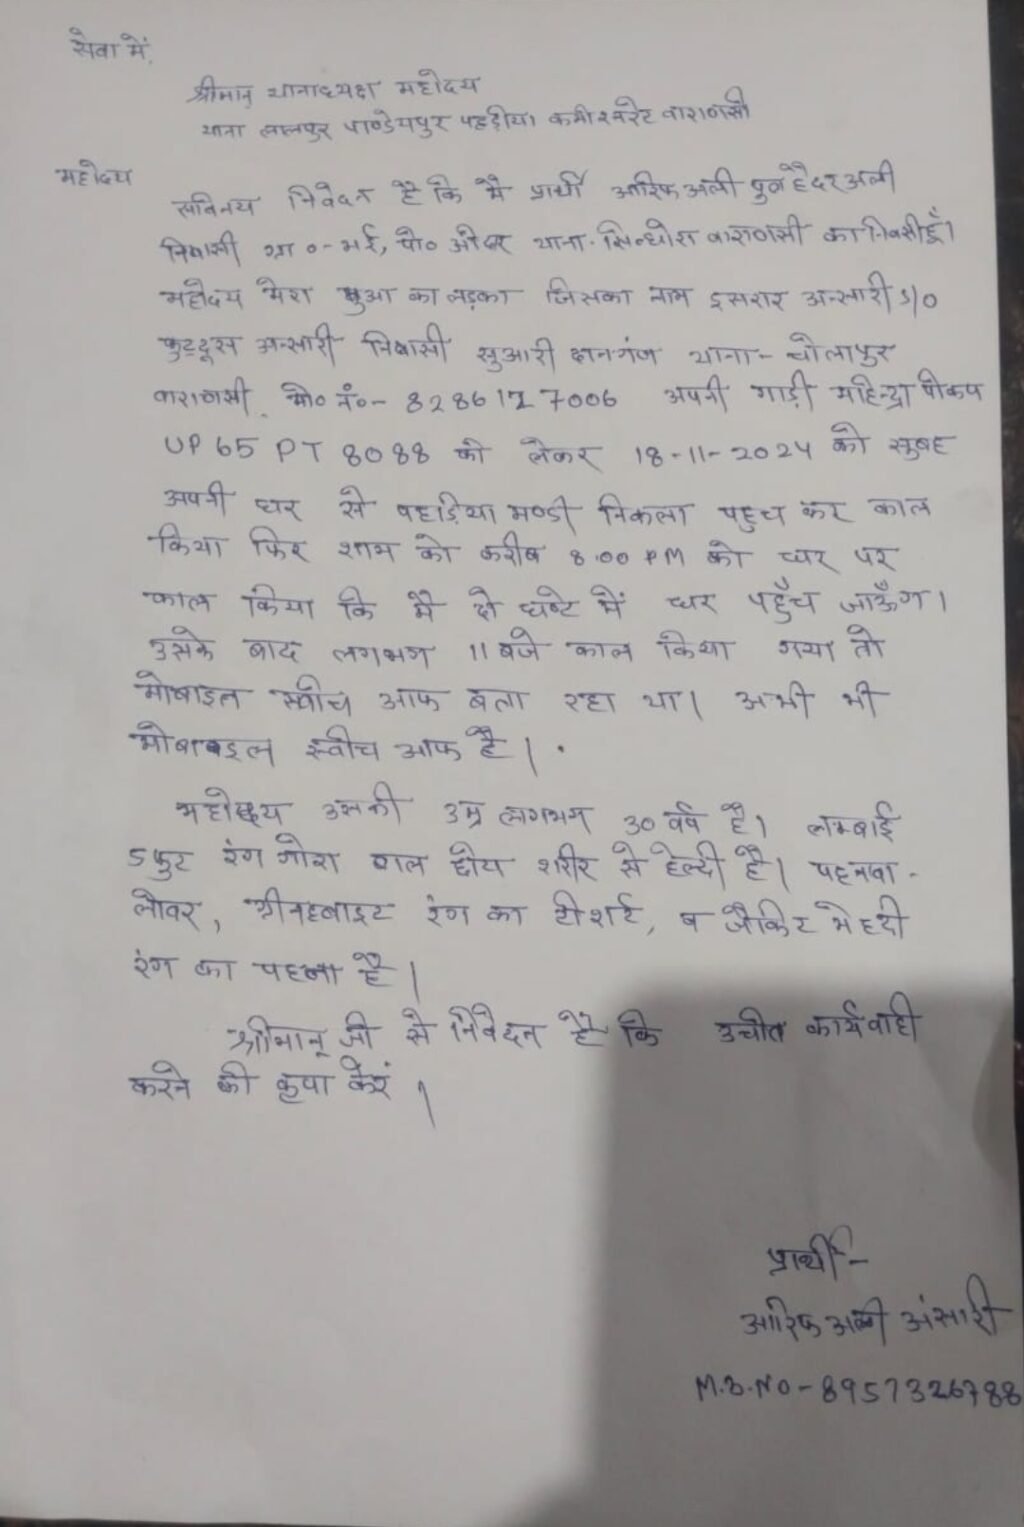 सेवा में,
श्रीमान् थानाध्यक्ष महोदय
थाना लालपुर पाण्डेयपुर पहड़ीया कमीश्नरेट वाराणसी
महोदय
सविनय निवेदन है कि मै प्रार्थी आरिफ अली पुत्र हैदर अली
निवासी ग्रा०-भई, पो० ओदार थाना-सिन्धोरा वाराणसी का निवासी हूँ।
महोदय मेरा बुआ का लड़का जिसका नाम इसरार अन्सारी S/O
कुद्दूस अन्सारी निवासी सुआरी दानगंज थाना - चोलापुर
वाराणसी मो० नं०- 8286127006 अपनी गाड़ी महिन्द्रा पीकप
UP 65 PT 8088 को लेकर 18-11-2024 को सुबह
अपनी घर से पहाड़िया मण्डी निकला पहुच कर काल
किया फिर शाम को करीब 8:00 PM को घर पर
काल किया कि मै दो घण्टे में घर पहुँच जाऊँगा।
उसके बाद लगभग 11 बजे काल किया गया तो
मोबाइल स्वीच आफ बता रहा था। अभी भी
मोबाइल स्वीच आफ है।
महोदय उसकी उम्र लगभग 30 वर्ष है। लम्बाई
5 फुट रंग गोरा बाल छोटा शरीर से हेल्दी है। पहनावा -
लोवर, ग्रीनह्वाइट रंग का टीशर्ट, व जैकिट मेहदी
रंग का पहना है।
श्रीमान् जी से निवेदन है कि उचीत कार्यवाही
करने की कृपा करें।
प्रार्थी -
आरिफ अली अंसारी
M.B.NO - 8957326788